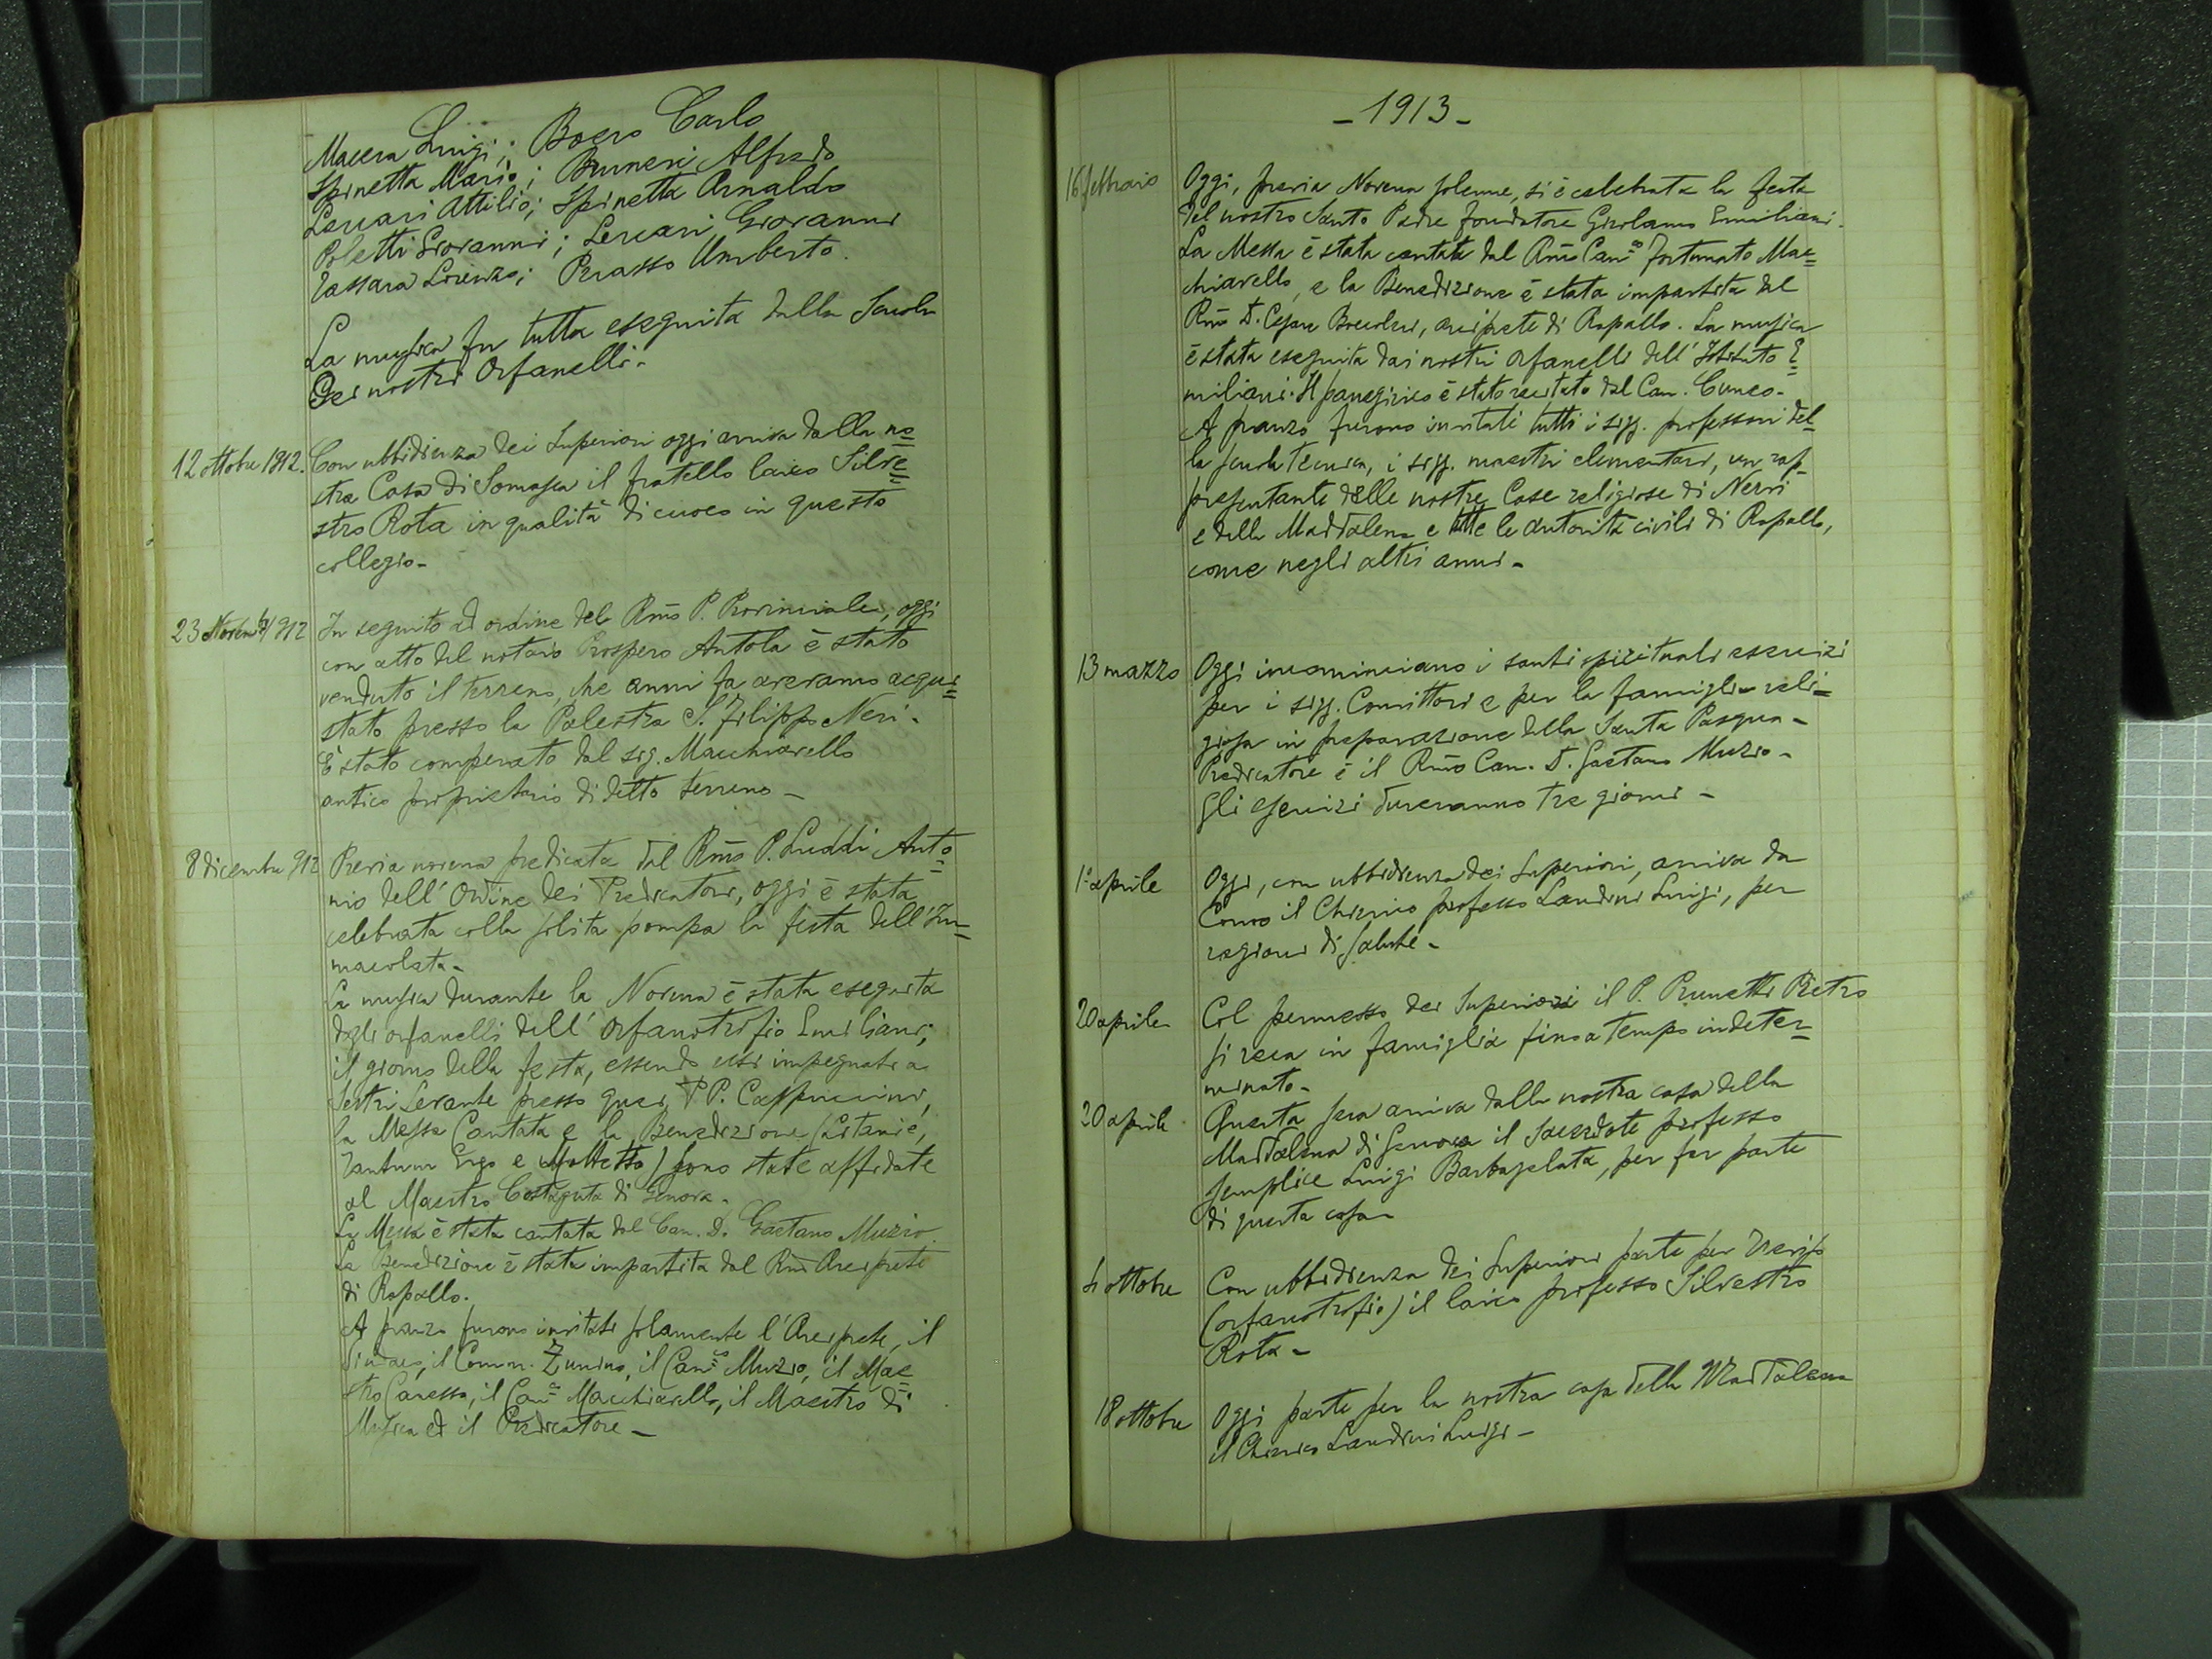 Macera Luigi; Boero Carlo
Spinetta Mario; Bruneri Alfredo
Lercari Attilio; Spinetta Arnaldo
Poletti Giovanni; Lercari Giovanni
Tassara Lorenzo; Perasso Umberto.
La musica fu tutta eseguita dalla Scuola
dei nostri Orfanelli.
12 ottobre 1912. Con ubbidienza dei Superiori oggi arriva dalla no=
stra Casa di Somasca il fratello laico Silve=
stro Rota in qualità di cuoco in questo
collegio-
23 Novemb 912 In seguito ad ordine del Rmo P. Provinciale, oggi
con atto del notaro Prospero Antola è stato
venduto il terreno, che anni fa avevamo acqui=
stato presso la Palestra S. Filippo Neri-
È stato comperato dal sig. Macchiavello
antico proprietario di detto terreno-
8 dicembre 912 Previa novena predicata dal Rmo P. Luddi Anto=
nio dell'Ordine dei Predicatori, oggi è stata
celebrata colla solita pompa la festa dell'Im=
macolata-
La musica durante la Novena è stata eseguita
dagli orfanelli dell'Orfanotrofio Emiliani;
il giorno della festa, essendo essi impegnati a
Sestri Levante presso quei PP. Cappuccini,
la Messa Cantata e la Benedizione (Litanie,
Tantum Ergo e Mottetto) sono state affidate
al Maestro Costaguta di Genova-
La Messa è stata cantata dal Can. D. Gaetano Muzio.
La Benedizione è stata impartita dal Rmo Arciprete
di Rapallo.
A pranzo furono invitati solamente l'Arciprete, il
Sindaco, il Comm. Zunino, il Canco Muzio, il Mae=
stro Canessa, il Canco Macchiavello, il Maestro di
Musica ed il Predicatore-
- 1913 -
16 febbraio Oggi, previa Novena solenne, si è celebrata la festa
del nostro Santo Padre fondatore Girolamo Emiliani.
La Messa è stata cantata dal Rmo Canco Fortunato Mac=
chiavello, e la Benedizione è stata impartita dal
Rmo D. Cesare Boccoleri, arciprete di Rapallo. La musica
è stata eseguita dai nostri Orfanelli dell'Istituto E=
miliani. Il panegirico è stato recitato dal Can. Cuneo-
A pranzo furono invitati tutti i sigg. professori del=
la scuola tecnica, i sigg. maestri elementari, un rap-
presentante delle nostre Case religiose di Nervi
e della Maddalena e tutte le autorità civili di Rapallo,
come negli altri anni-
13 marzo Oggi incominciano i santi spirituali esercizi
per i sigg. Convittori e per la famiglia reli=
giosa in preparazione della Santa Pasqua-
Predicatore è il Rmo Can. D. Gaetano Muzio-
Gli esercizi dureranno tre giorni-
1° aprile Oggi, con ubbidienza dei Superiori, arriva da
Como il Chierico professo Landini Luigi, per
ragioni di salute-
20 aprile Col permesso dei Superiori il P. Prunetti Pietro
si reca in famiglia fino a tempo indeter=
minato-
20 aprile Questa sera arriva dalla nostra casa della
Maddalena di Genova il Sacerdote professo
semplice Luigi Barbagelata, per far parte
di questa casa-
4 ottobre Con ubbidienza dei Superiori parte per Treviso
(orfanotrofio) il laico professo Silvestro
Rota-
18 ottobre Oggi parte per la nostra casa della Maddalena
il Chierico Landini Luigi-